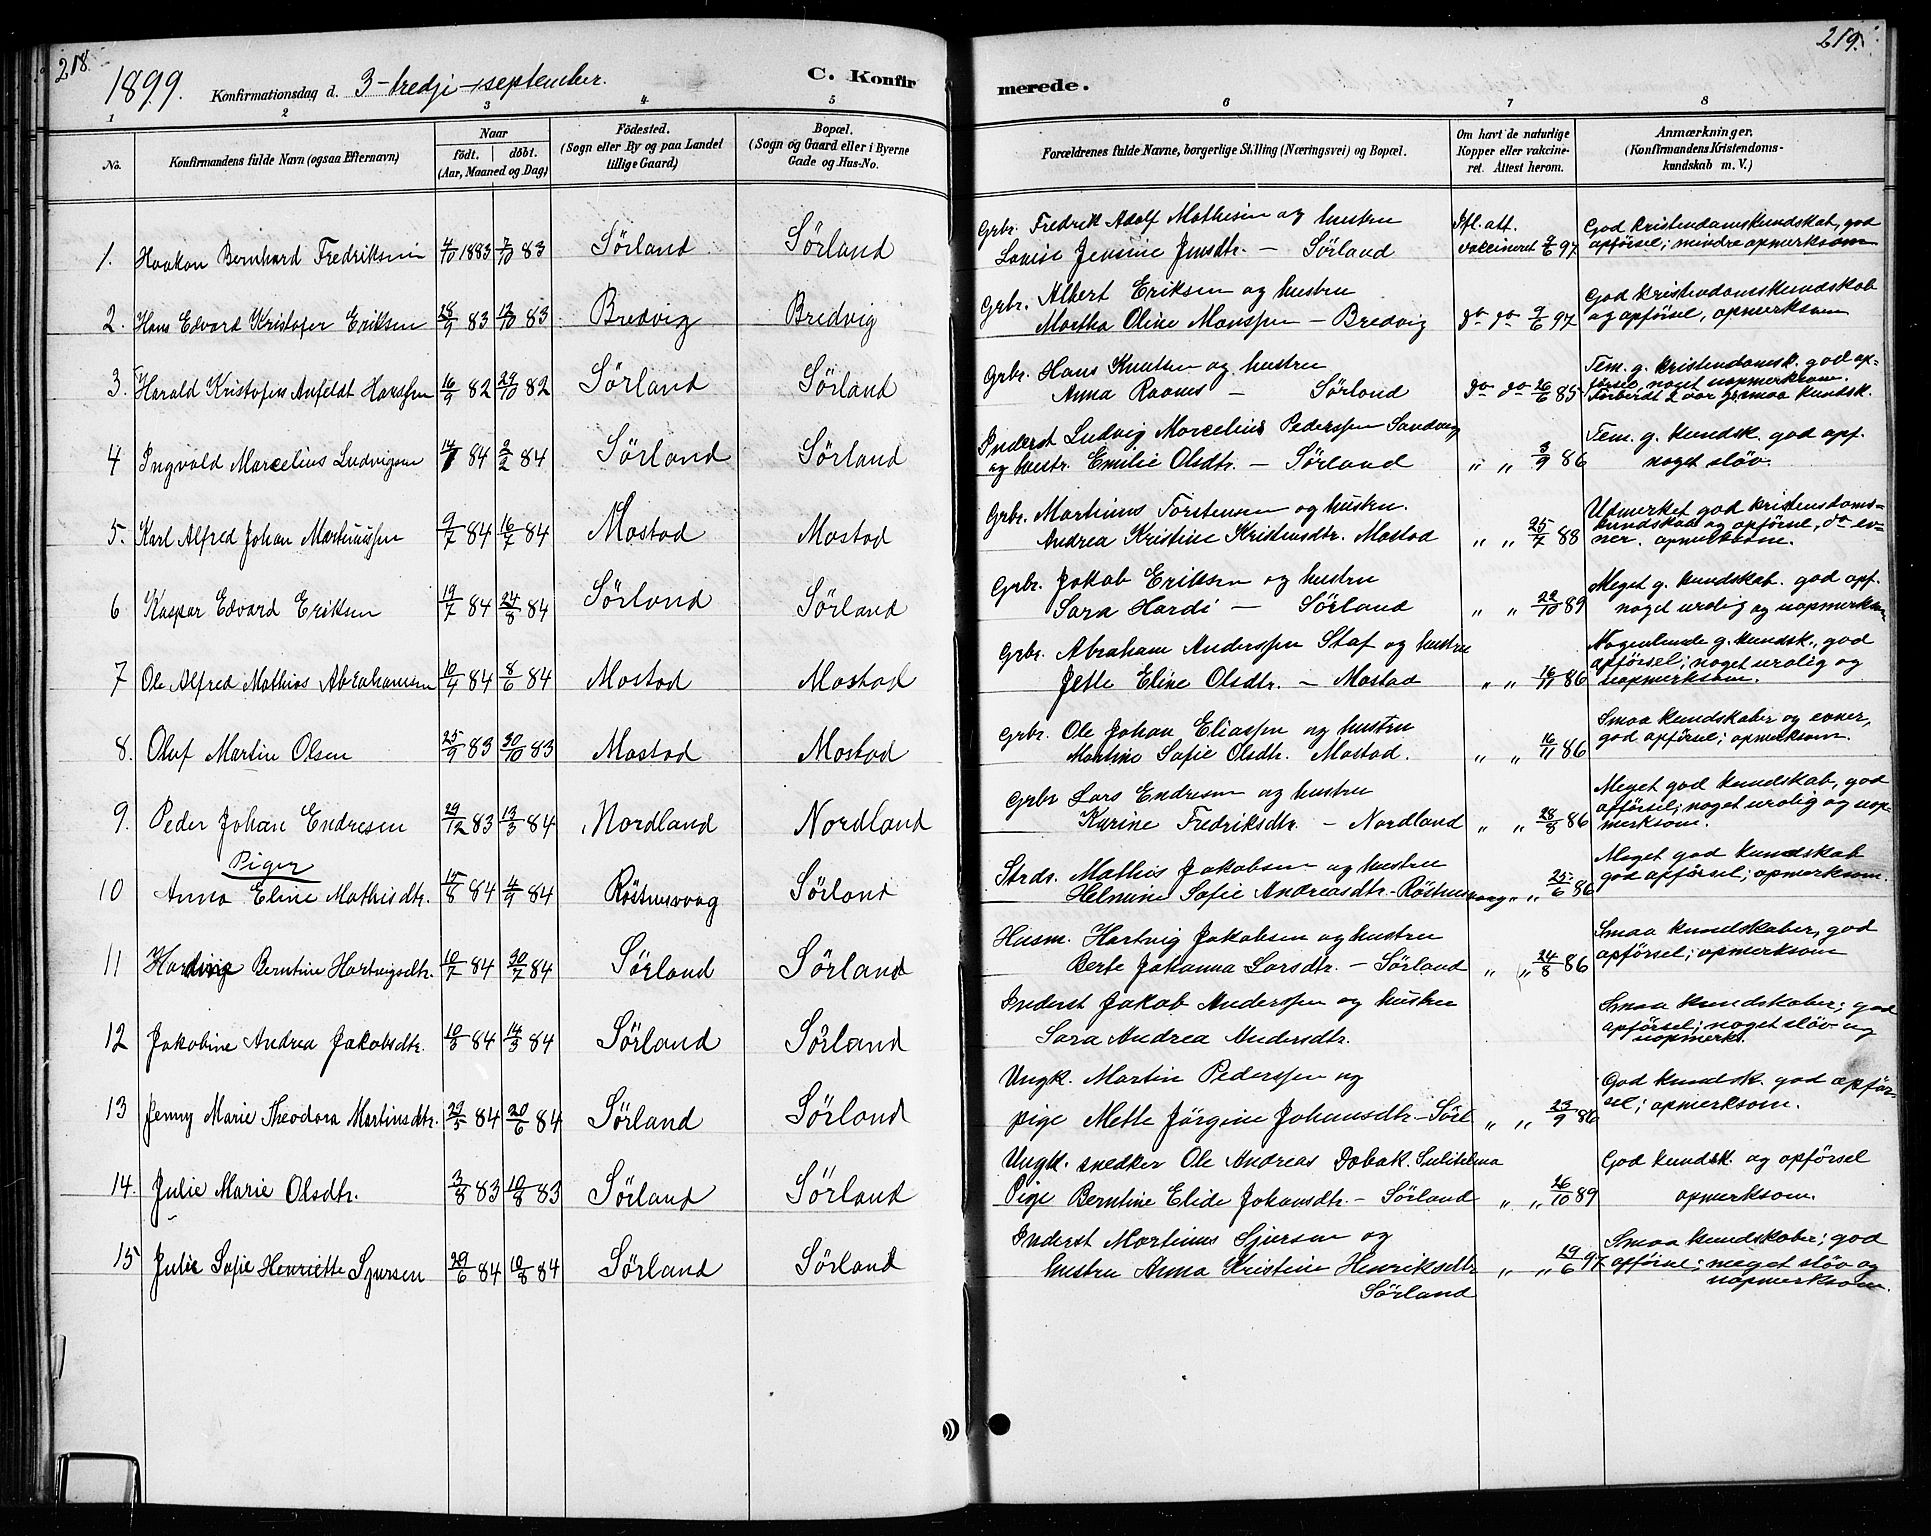 218.
219.
1899. Konfirmationsdag d. 3-tredje-september.
C. Konfirmerede.
1 2 3 4 5 6 7 8
No.
Konfirmandens fulde Navn (ogsaa Efternavn)
Naar
födt. | döbt.
(Aar, Maaned og Dag)
Födested.
(Sogn eller By og paa Landet
tillige Gaard)
Bopæl.
(Sogn og Gaard eller i Byerne
Gade og Hus-No.
Forældrenes fulde Navne, borgerlige Stilling (Næringsvei) og Bopæl.
Om havt de naturlige
Kopper eller vakcine-
ret. Attest herom.
Anmærkninger.
(Konfirmandens Kristendoms-
kundskab m. V.)
Grbr. Fredrik Adolf Mathisen og hustru
1. Haakon Bernhard Fredriksen 4/10 1883 7/10 83 Sörland Sörland
Lovise Jensine Jensdtr. — Sörland
Ifl. att.
vakcineret 9/6 97
God kristendomskundskab, god
opförsel; mindre opmerksom
2. Hans Edvard Kristofer Eriksen 28/9 83 12/10 83 Bredvig Bredvig
Grbr. Albert Eriksen og hustru
Martha Oline Monssen — Bredvig
do do 9/6 97
God kristendomskundskab
og opförsel, opmerksom
3. Harald Kristofer Anfeldt Hanssen 16/9 82 29/10 82 Sörland Sörland
Grbr. Hans Knutsen og hustru
Anna — Sörland
do do 26/6 85
Tem. g. kristendomsk. god op-
försel, noget uopmerksom.
Forberdt 2 aar gr. smaa kundsk.
4 Ingvald Marcelius Ludvigsen 14/1 84 2/2 84 Sörland Sörland
Inderst Ludvig Marcelius Pederssen Sandvig
og hustr. Emilie Olsdtr. — Sörland
" " 3/9 86
Tem. g. kundsk. god opf.
noget slöv.
5. Karl Alfred Johan Martinussen 9/7 84 16/7 84 Mostad Mostad
Grbr. Martinus Torstensen og hustru.
Andrea Kristine Kristensdtr. Mostad
" " 25/7 88
Utmerket god kristendoms-
kundskab og opförsel, do ev-
ner. opmerksom.
6 Kaspar Edvard Eriksen 19/7 84 24/8 84 Sörland Sörland
Grbr. Jakob Eriksen og hustru
Sara Hardi — Sörland
" " 22/10 89
Meget g. kundskab. god opf.
noget urolig og uopmerksom
7 Ole Alfred Mathias Abrahamsen 10/4 84 8/6 84 Mostad Mostad
Grbr. Abraham Anderssen Staf og hustru
Jette Eline Olsdtr. — Mostad
" " 16/11 86
Nogenlunde g. kundsk., god
opförsel; noget urolig og
uopmerksom.
8. Oluf Martin Olsen 25/9 83 30/10 83 Mostad Mostad
Grbr. Ole Johan Eliassen og hustru
Martine Sofie Olsdtr. Mostad.
" " 16/11 86
Smaa kundskaber og evner,
god opförsel; opmerksom.
9. Peder Johan Endresen 29/12 83 13/3 84 Nordland Nordland
Grbr Lars Endresen og hustru
Karine Fredriksdtr. — Nordland
" " 28/8 86
Meget god kundskab, god
opförsel; noget urolig og uop-
merksom.
Piger
10 Anna Eline Mathisdtr. 15/8 84 4/9 84 Röstnesvaag Sörland
Strds. Mathis Jakobsen og hustru
Helmine Sofie Andreasdtr. - Röstnesvaag
" " 25/6 86
Meget god kundskab
god opförsel; opmerksom.
11 Berntine Hartvigsdtr. 10/7 84 30/7 84 Sörland Sörland
Husm. Hartvig Jakobsen og hustru
Berte Johanna Larsdtr. — Sörland
" " 24/8 86
Smaa kundskaber, god
opförsel; opmerksom
12 Jakobine Andrea Jakobsdtr. 10/3 84 14/3 84 Sörland Sörland
Inderst Jakob Anderssen og hustru
Sara Andrea Andersdtr.
Smaa kundskaber; god
opförsel; noget slöv og
uopmerks.
13 Jenny Marie Theodora Martinsdtr. 29/5 84 20/6 84 Sörland Sörland
Ungk. Martin Pederssen og
pige Mette Jörgine Johansdtr - Sörl
" " 23/9 86
God kundsk. god opför-
sel; opmerksom.
14. Julie Marie Olsdtr. 3/8 83 10/8 83 Sörland Sörland
Ungk. snedker Ole Andreas Dobak. Sulitelma
Pige Berntine Elide Johansdtr. - Sörland
" " 26/10 89
God kundsk. og opförsel
opmerksom.
15 Julie Sofie Henriette Sjursen 29/6 84 10/8 84 Sörland Sörland
Inderst Martinus Sjursen og
hustru Anna Kristine Henriksdtr
Sörland
" " 29/6 97
Smaa kundskaber; god
opförsel; meget slöv og
uopmerksom.